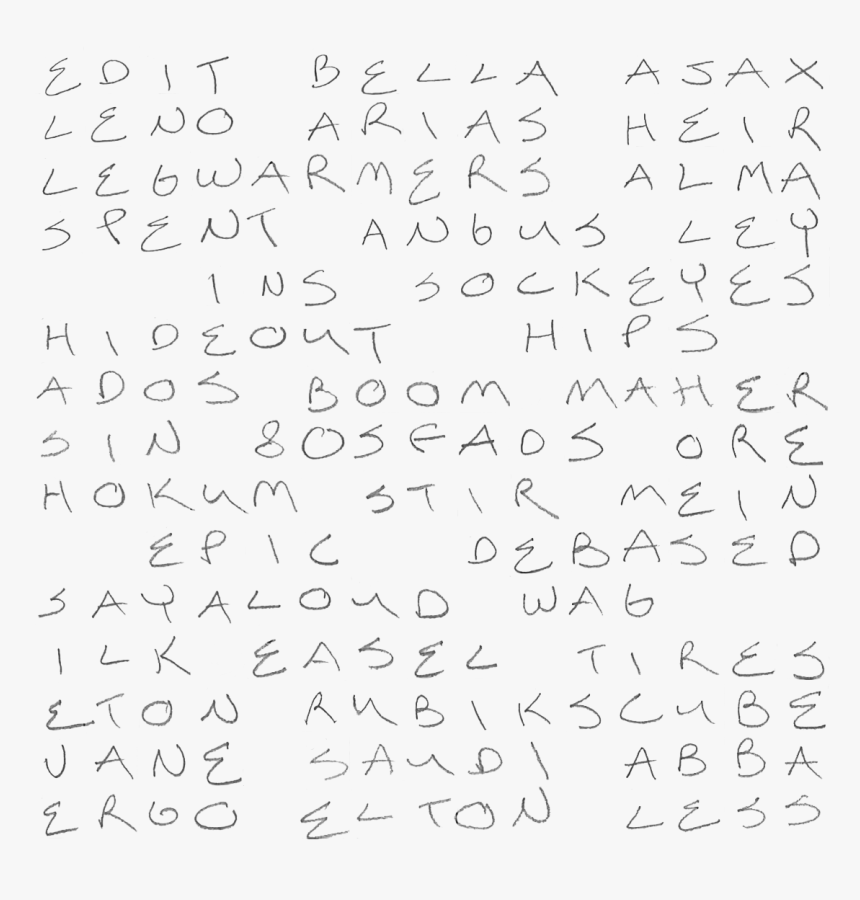 EDIT BELLA ASAX
LENO ARIAS HEIR
LEGWARMERS ALMA
SPENT ANGUS LEY
INS SOCKEYES
HIDEOUT HIPS
ADOS BOOM MAHER
SIN 80SFADS ORE
HOKUM STIR MEIN
EPIC DEBASED
SAYALOUD WAG
ILK EASEL TIRES
ETON RUBIKSCUBE
JANE SAUDI ABBA
ERGO ELTON LESS